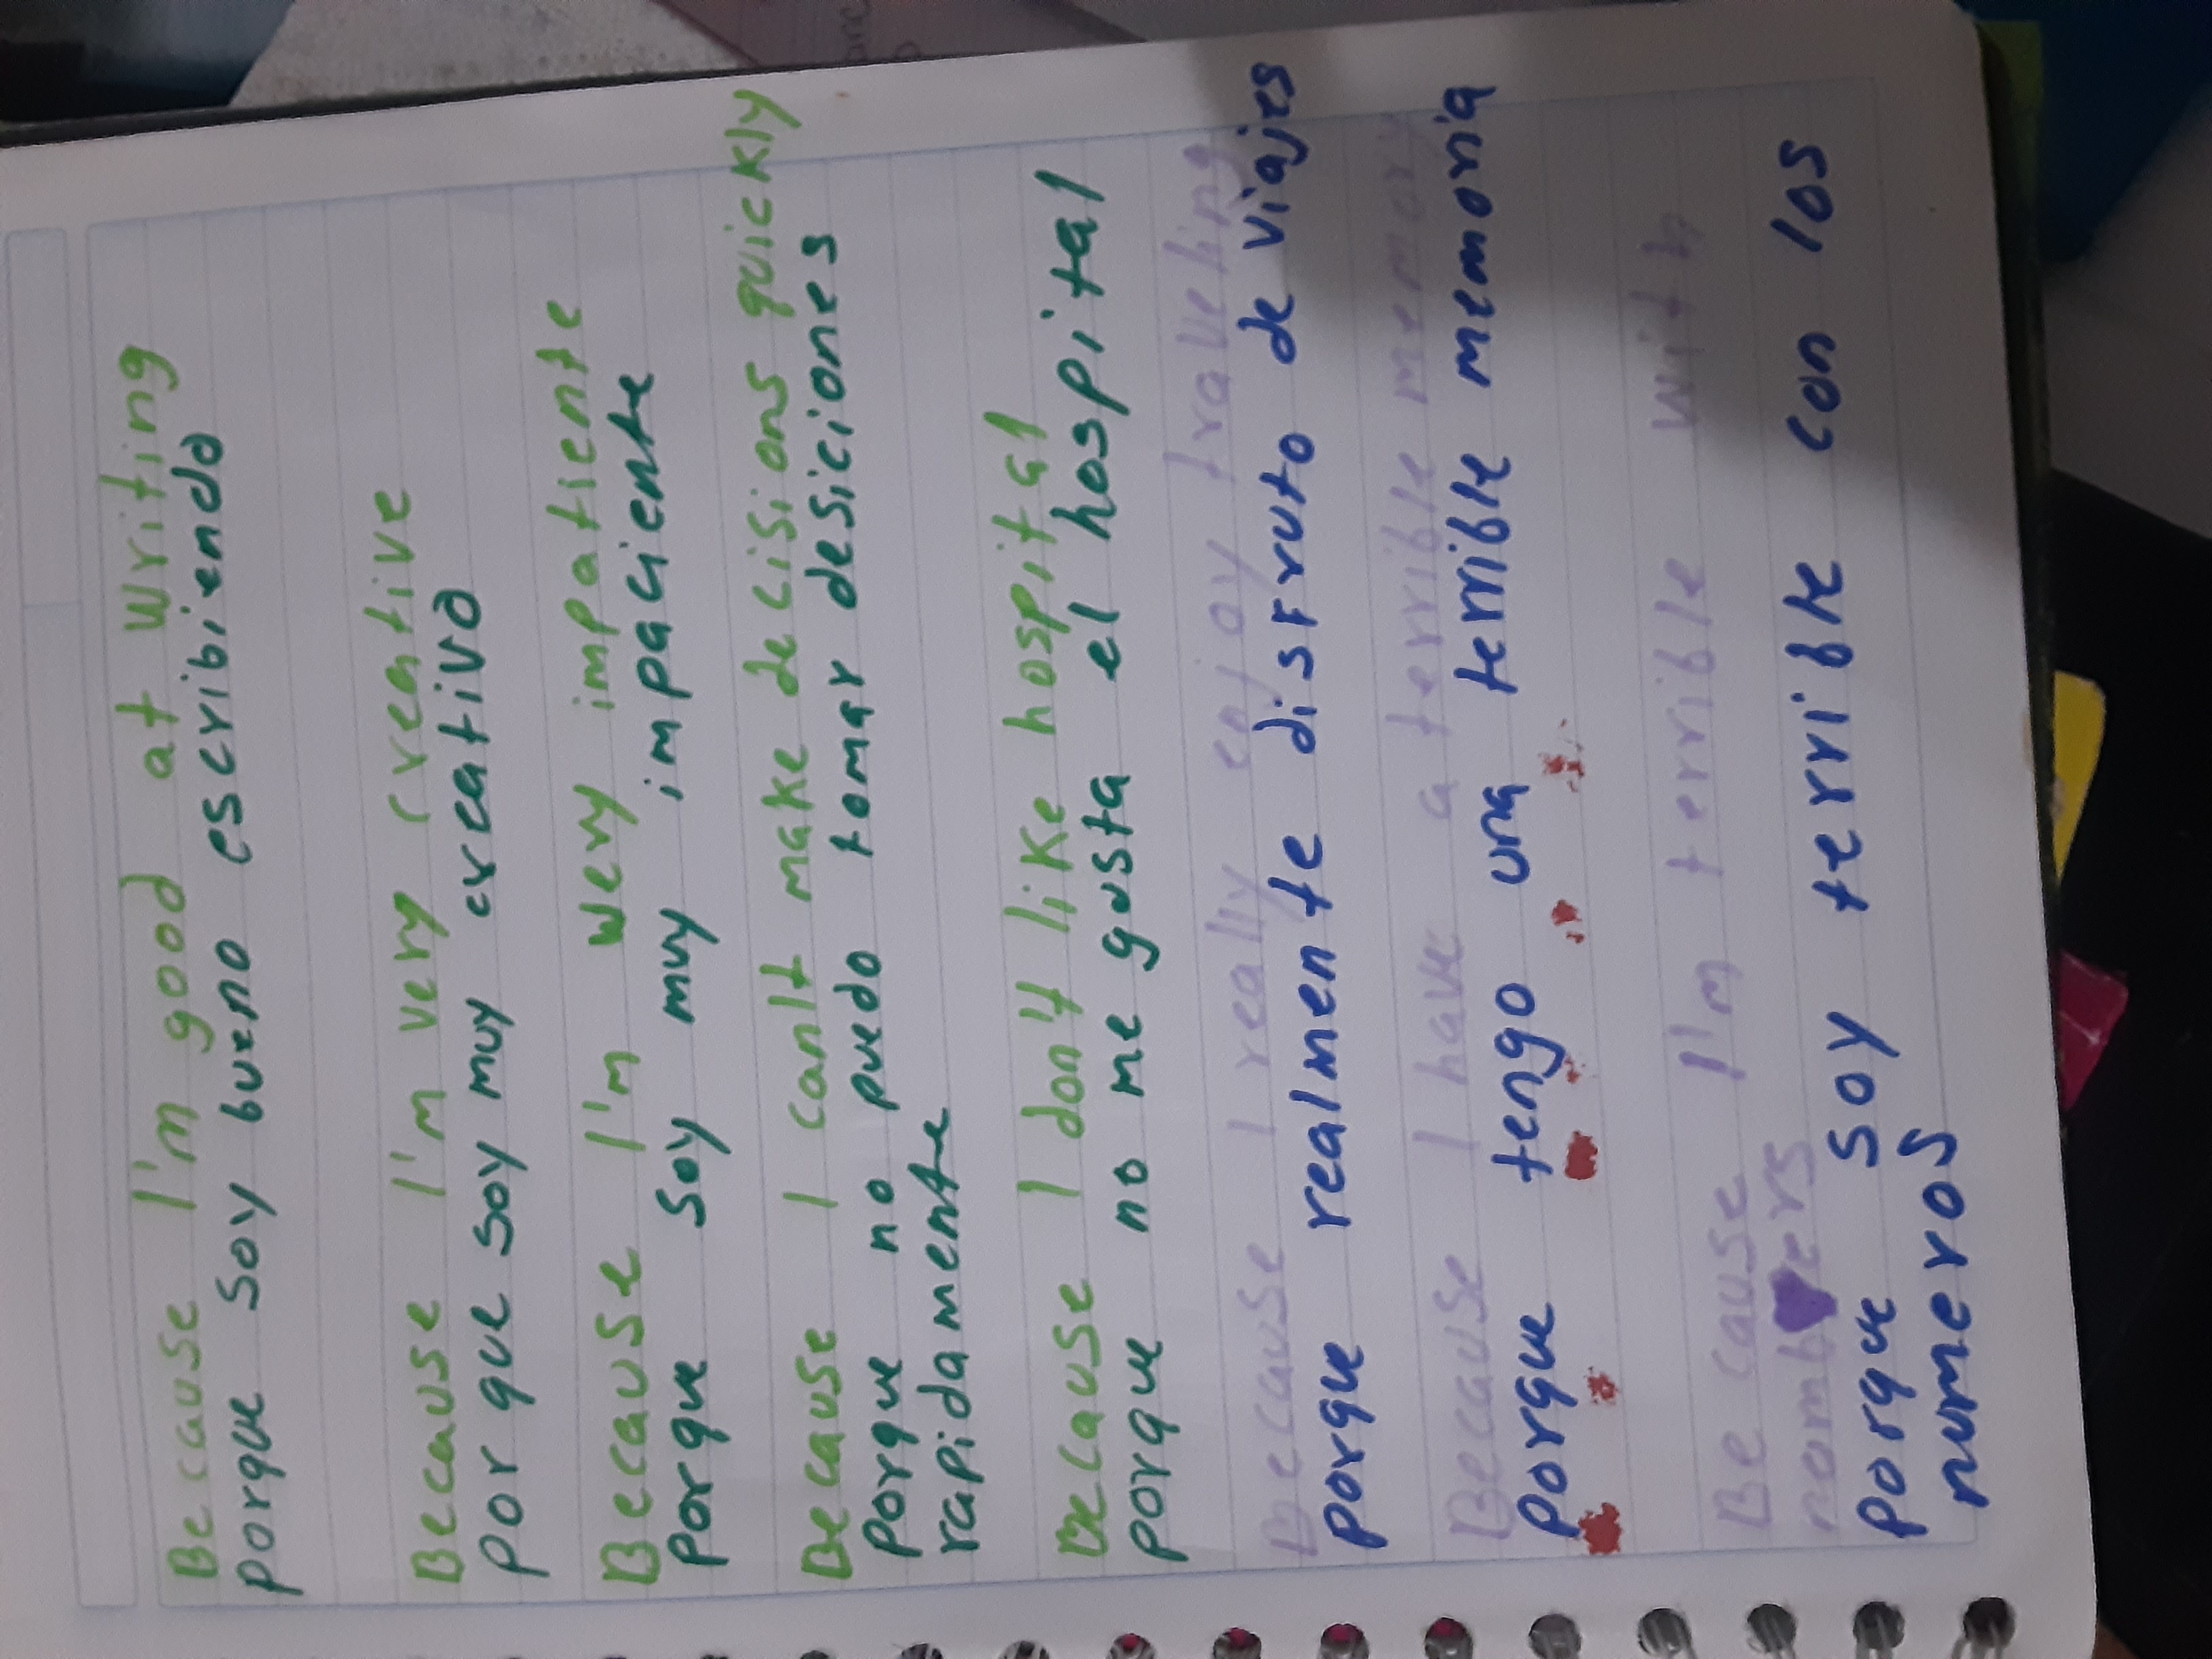 Because I'm good at writing
porque soy bueno escribiendo
Because I'm very creative
por que soy muy creativo
Because I'm wery impatiente
porque soy muy impaciente
Because I can't make decisions quickly
porque no puedo tomar desiciones
rapidamente
Because I don't like hospital
porque no me gusta el hospital
Because I really enjoy traveling
porque realmente disfruto de viajes
Because I have a terrible memory
porque tengo una terrible memoria
Because I'm terrible with
porque soy terrible con los
numeros